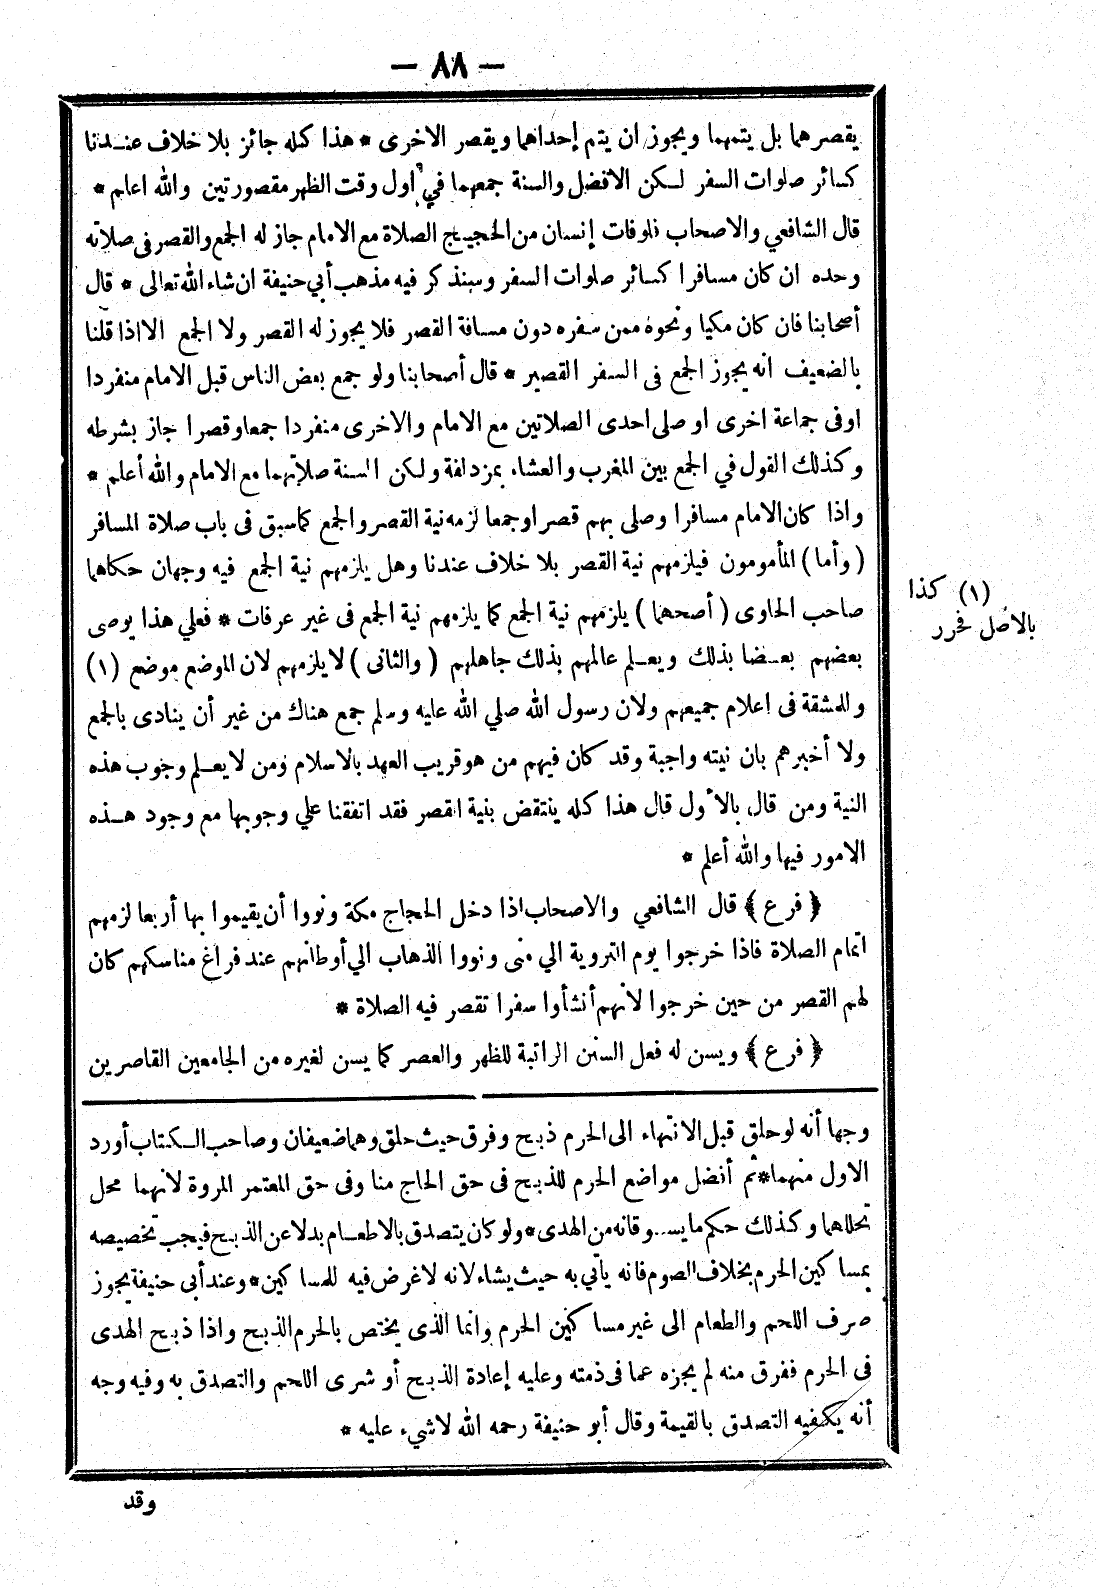 — ٨٨ —
يقصرهما بل يتمهما ويجوز ان يتم إحداهما ويقصر الاخرى * هذا كله جائز بلا خلاف عندنا
كسائر صلوات السفر لكن الافضل والسنة جمعهما في اول وقت الظهر مقصورتين والله اعلم *
قال الشافعي والاصحاب فلوفات إنسان من الحجيج الصلاة مع الامام جاز له الجمع والقصر فى صلاته
وحده ان كان مسافرا كسائر صلوات السفر وسنذكر فيه مذهب أبي حنيفة ان شاء الله تعالى * قال
أصحابنا فان كان مكيا ونحوه ممن سفره دون مسافة القصر فلا يجوز له القصر ولا الجمع الا اذا قلنا
بالضعيف انه يجوز الجمع فى السفر القصير * قال أصحابنا ولو جمع بعض الناس قبل الامام منفردا
اوفى جماعة اخرى او صلى احدى الصلاتين مع الامام والاخرى منفردا جمعا وقصرا جاز بشرطه
وكذلك القول في الجمع بين المغرب والعشاء بمزدلفة ولكن السنة صلاتهما مع الامام والله أعلم *
واذا كان الامام مسافرا وصلى بهم قصرا وجمعا لزمه نية القصر والجمع كما سبق فى باب صلاة المسافر
(وأما) المأمومون فيلزمهم نية القصر بلا خلاف عندنا وهل يلزمهم نية الجمع فيه وجهان حكاهما
صاحب الحاوى (أصحهما) يلزمهم نية الجمع كما يلزمهم نية الجمع فى غير عرفات * فعلي هذا يوصى
بعضهم بعضا بذلك ويعلم عالمهم بذلك جاهلهم (والثانى) لا يلزمهم لان الموضع موضع (١)
وللمشقة فى اعلام جميعهم ولان رسول الله صلي الله عليه وسلم جمع هناك من غير أن ينادى بالجمع
ولا أخبرهم بان نيته واجبة وقد كان فيهم من هو قريب العهد بالاسلام ومن لا يعلم وجوب هذه
النية ومن قال بالأول قال هذا كله ينتقض بنية القصر فقد اتفقنا علي وجوبها مع وجود هذه
الامور فيها والله أعلم *
﴿فرع﴾ قال الشافعي والاصحاب اذا دخل الحجاج مكة ونووا أن يقيموا بها أربعا لزمهم
اتمام الصلاة فاذا خرجوا يوم التروية الي منى ونووا الذهاب الي أوطانهم عند فراغ مناسكهم كان
لهم القصر من حين خرجوا لانهم أنشأوا سفرا تقصر فيه الصلاة *
﴿فرع﴾ ويسن له فعل السنن الراتبة للظهر والعصر كما يسن لغيره من الجامعين القاصرين
(١) كذا
بالأصل فحرر
وجها أنه لو حلق قبل الانتهاء الى الحرم ذبح وفرق حيث حلق وهما ضعيفان وصاحب الكتاب أورد
الاول منهما * ثم أفضل مواضع الحرم للذبح فى حق الحاج منا وفى حق المعتمر المروة لانهما محل
تحللهما وكذلك حكم ما يسوقانه من الهدى * ولو كان يتصدق بالاطعام بدلا عن الذبح فيجب تخصيصه
بمساكين الحرم بخلاف الصوم فانه يأتي به حيث يشاء لانه لا غرض فيه للمساكين * وعند أبى حنيفة يجوز
صرف اللحم والطعام الى غير مساكين الحرم وانما الذى يختص بالحرم الذبح واذا ذبح الهدى
فى الحرم ففرق منه لم يجزه عما فى ذمته وعليه إعادة الذبح أو شرى اللحم والتصدق به وفيه وجه
أنه يكفيه التصدق بالقيمة وقال أبو حنيفة رحمه الله لا شيء عليه *
وقد